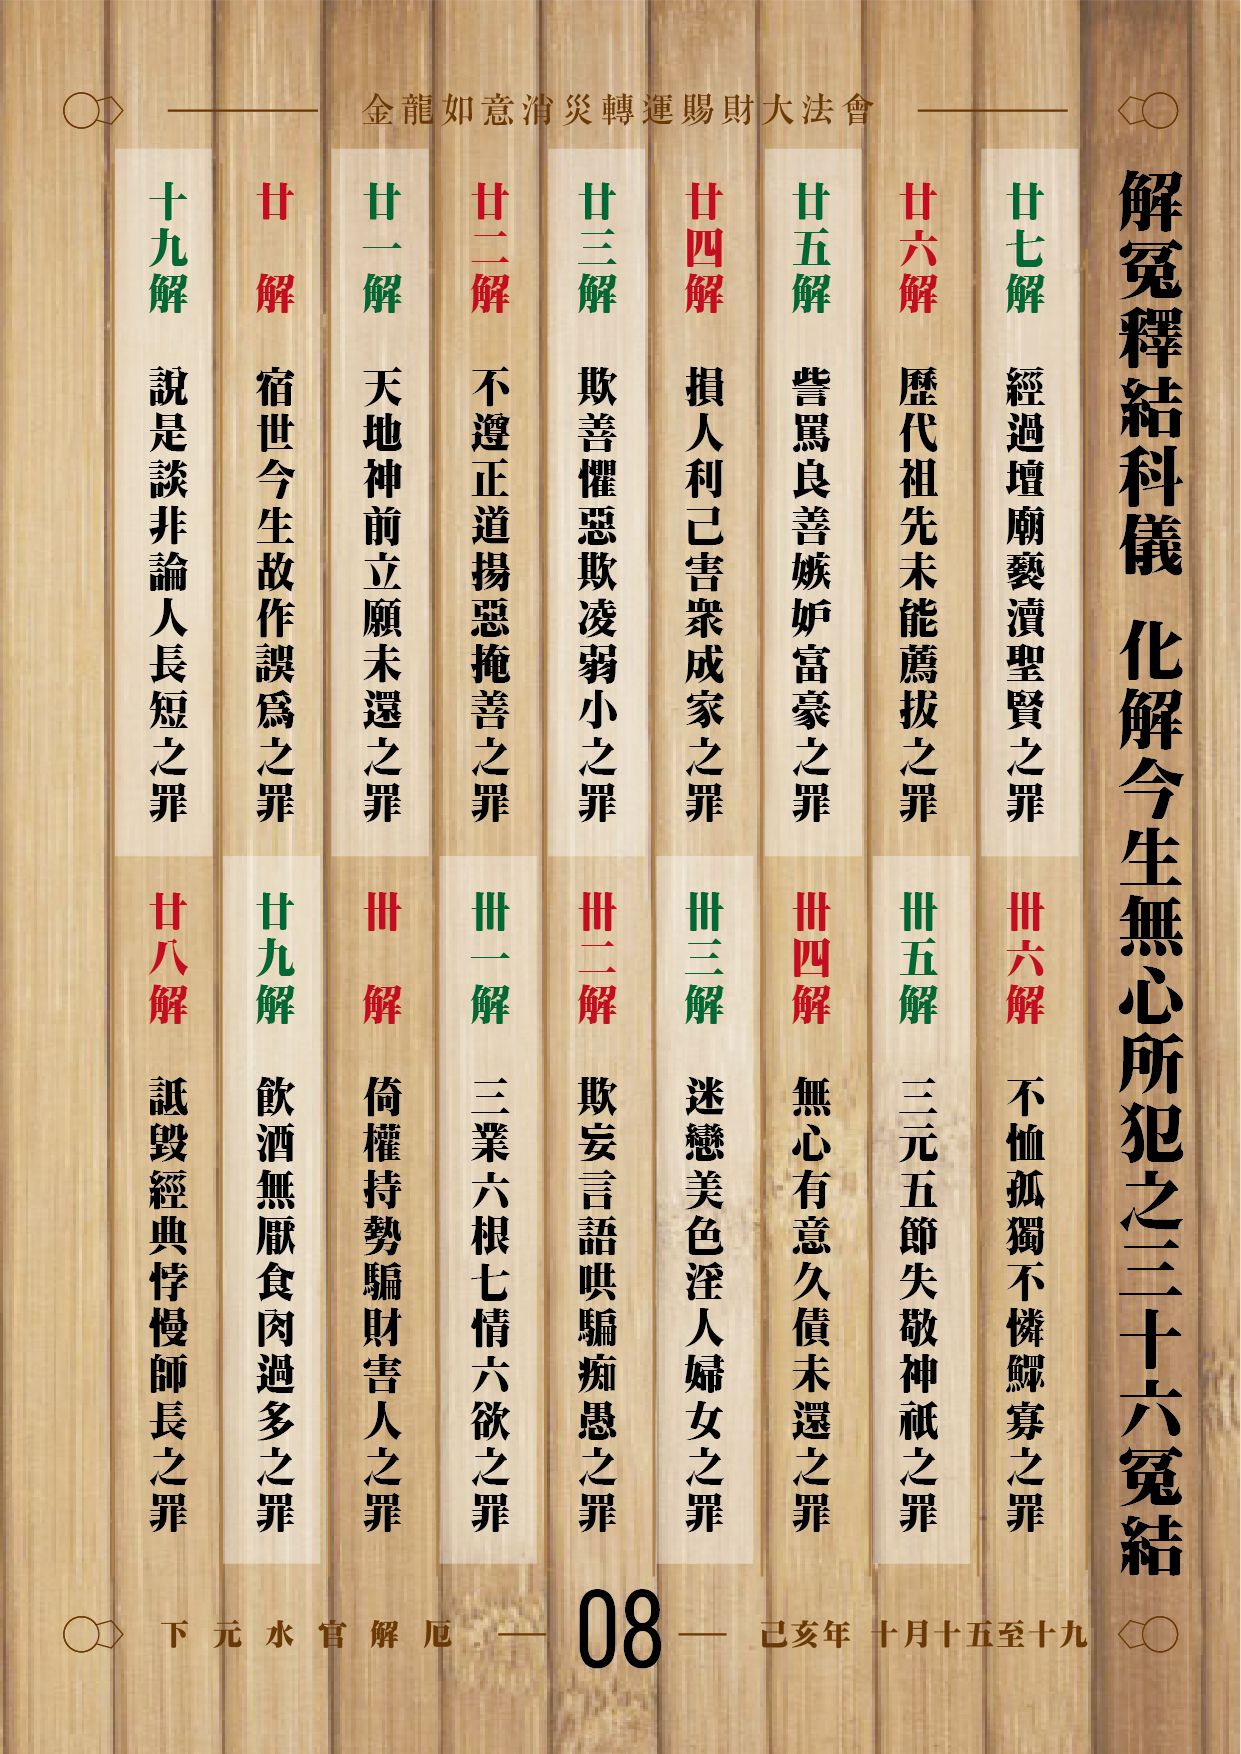 金龍如意消災轉運賜財大法會
解冤釋結科儀 化解今生無心所犯之三十六冤結
廿七解 經過壇廟褻瀆聖賢之罪
廿六解 歷代祖先未能薦拔之罪
廿五解 訾罵良善嫉妒富豪之罪
廿四解 損人利己害衆成家之罪
廿三解 欺善懼惡欺凌弱小之罪
廿二解 不遵正道揚惡掩善之罪
廿一解 天地神前立願未還之罪
廿 解 宿世今生故作誤為之罪
十九解 說是談非論人長短之罪
卅六解 不恤孤獨不憐鰥寡之罪
卅五解 三元五節失敬神祇之罪
卅四解 無心有意久債未還之罪
卅三解 迷戀美色淫人婦女之罪
卅二解 欺妄言語哄騙痴愚之罪
卅一解 三業六根七情六欲之罪
卅 解 倚權持勢騙財害人之罪
廿九解 飲酒無厭食肉過多之罪
廿八解 詆毀經典悖慢師長之罪
下元水官解厄
08
己亥年 十月十五至十九